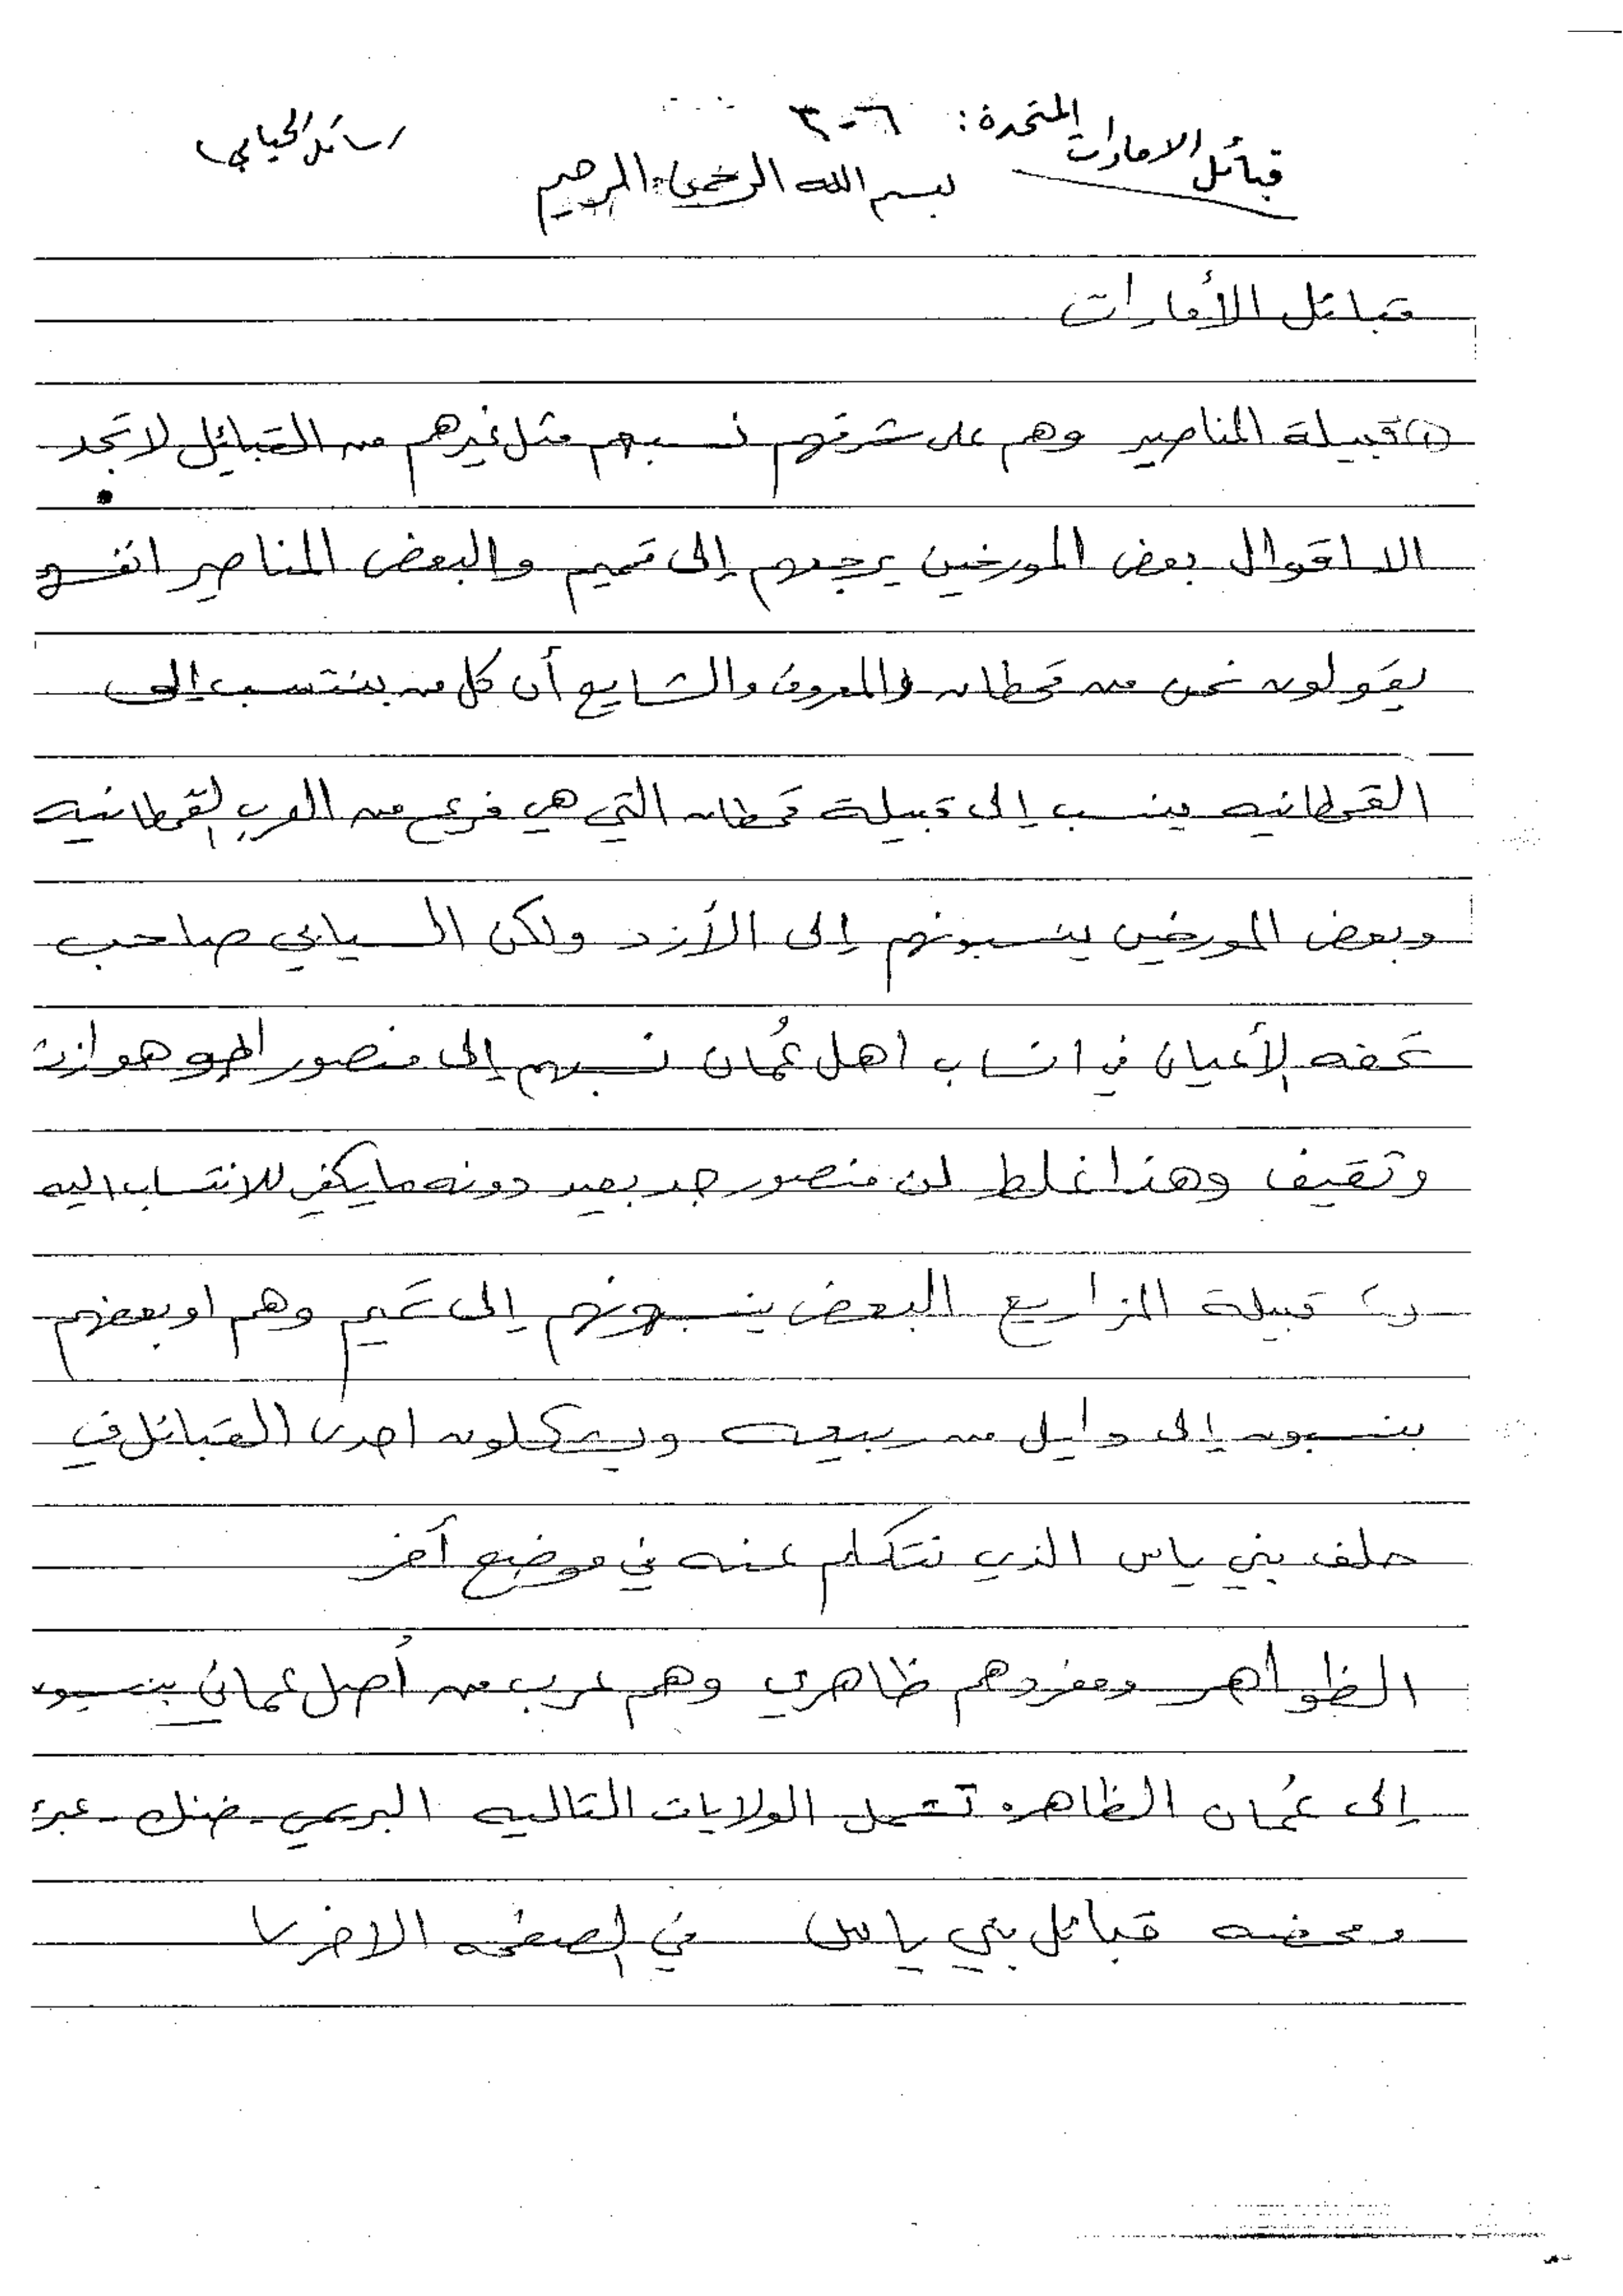 قبائل الامارات المتحدة: ٦-٣
رسائل الحيابي
بسم الله الرحمن الرحيم
قبائل الأمارات
(١) قبيلة المناصير وهم على شرفهم نسبهم مثل غيرهم من القبائل لا تجد
الا اقوال بعض المورخين يرجعهم إلى تميم والبعض المناصير انفسهم
يقولون نحن من قحطان والمعروف والشايع أن كل من ينتسب إلى
القحطانيه ينسب إلى قبيلة قحطان التي هي فرع من العرب القحطانيه
وبعض المورخين ينسبونهم إلى الأزد ولكن السيابي صاحب
تحفه الأعيان في انساب اهل عُمان نسبهم إلى منصور ابو هوازن
وثقيف وهذا غلط لان منصور جد بعيد دونه ما يكفي للانتساب اليه
قبيلة المزاريع البعض ينسبونهم إلى تميم وهم او بعضهم
ينسبون إلى وايل من ربيعه ويشكلون احدى القبائل في
حلف بني ياس الذي نتكلم عنه في موضع آخر
الظواهر ومفردهم ظاهري وهم عرب من أصل عمان ينسبون
إلى عُمان الظاهره تشمل الولايات التاليه البريمي - ضنك - عبري
ومحضه قبائل بني ياس في الصفحه الاخرى